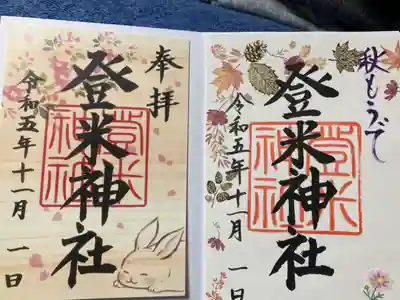 奉拝
登米神社
令和五年十一月一日
登米神社
秋もうで
登米神社
令和五年十一月一日
登米神社